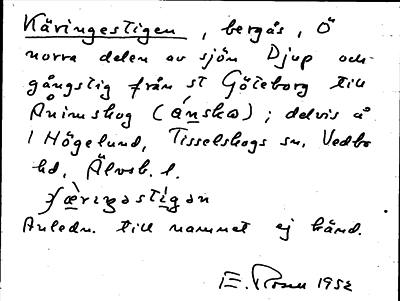 Käringestigen, bergås, Ö
norra delen av sjön Djup och
gångstig från st Göteborg till
Ånimskog (ånskə); delvis å
1 Högelund, Tisselskogs sn, Vedbo
hd, Älvsb. l.
çæ̀riŋəstigən
Anledn. till namnet ej känd.
E. Rosen 1952